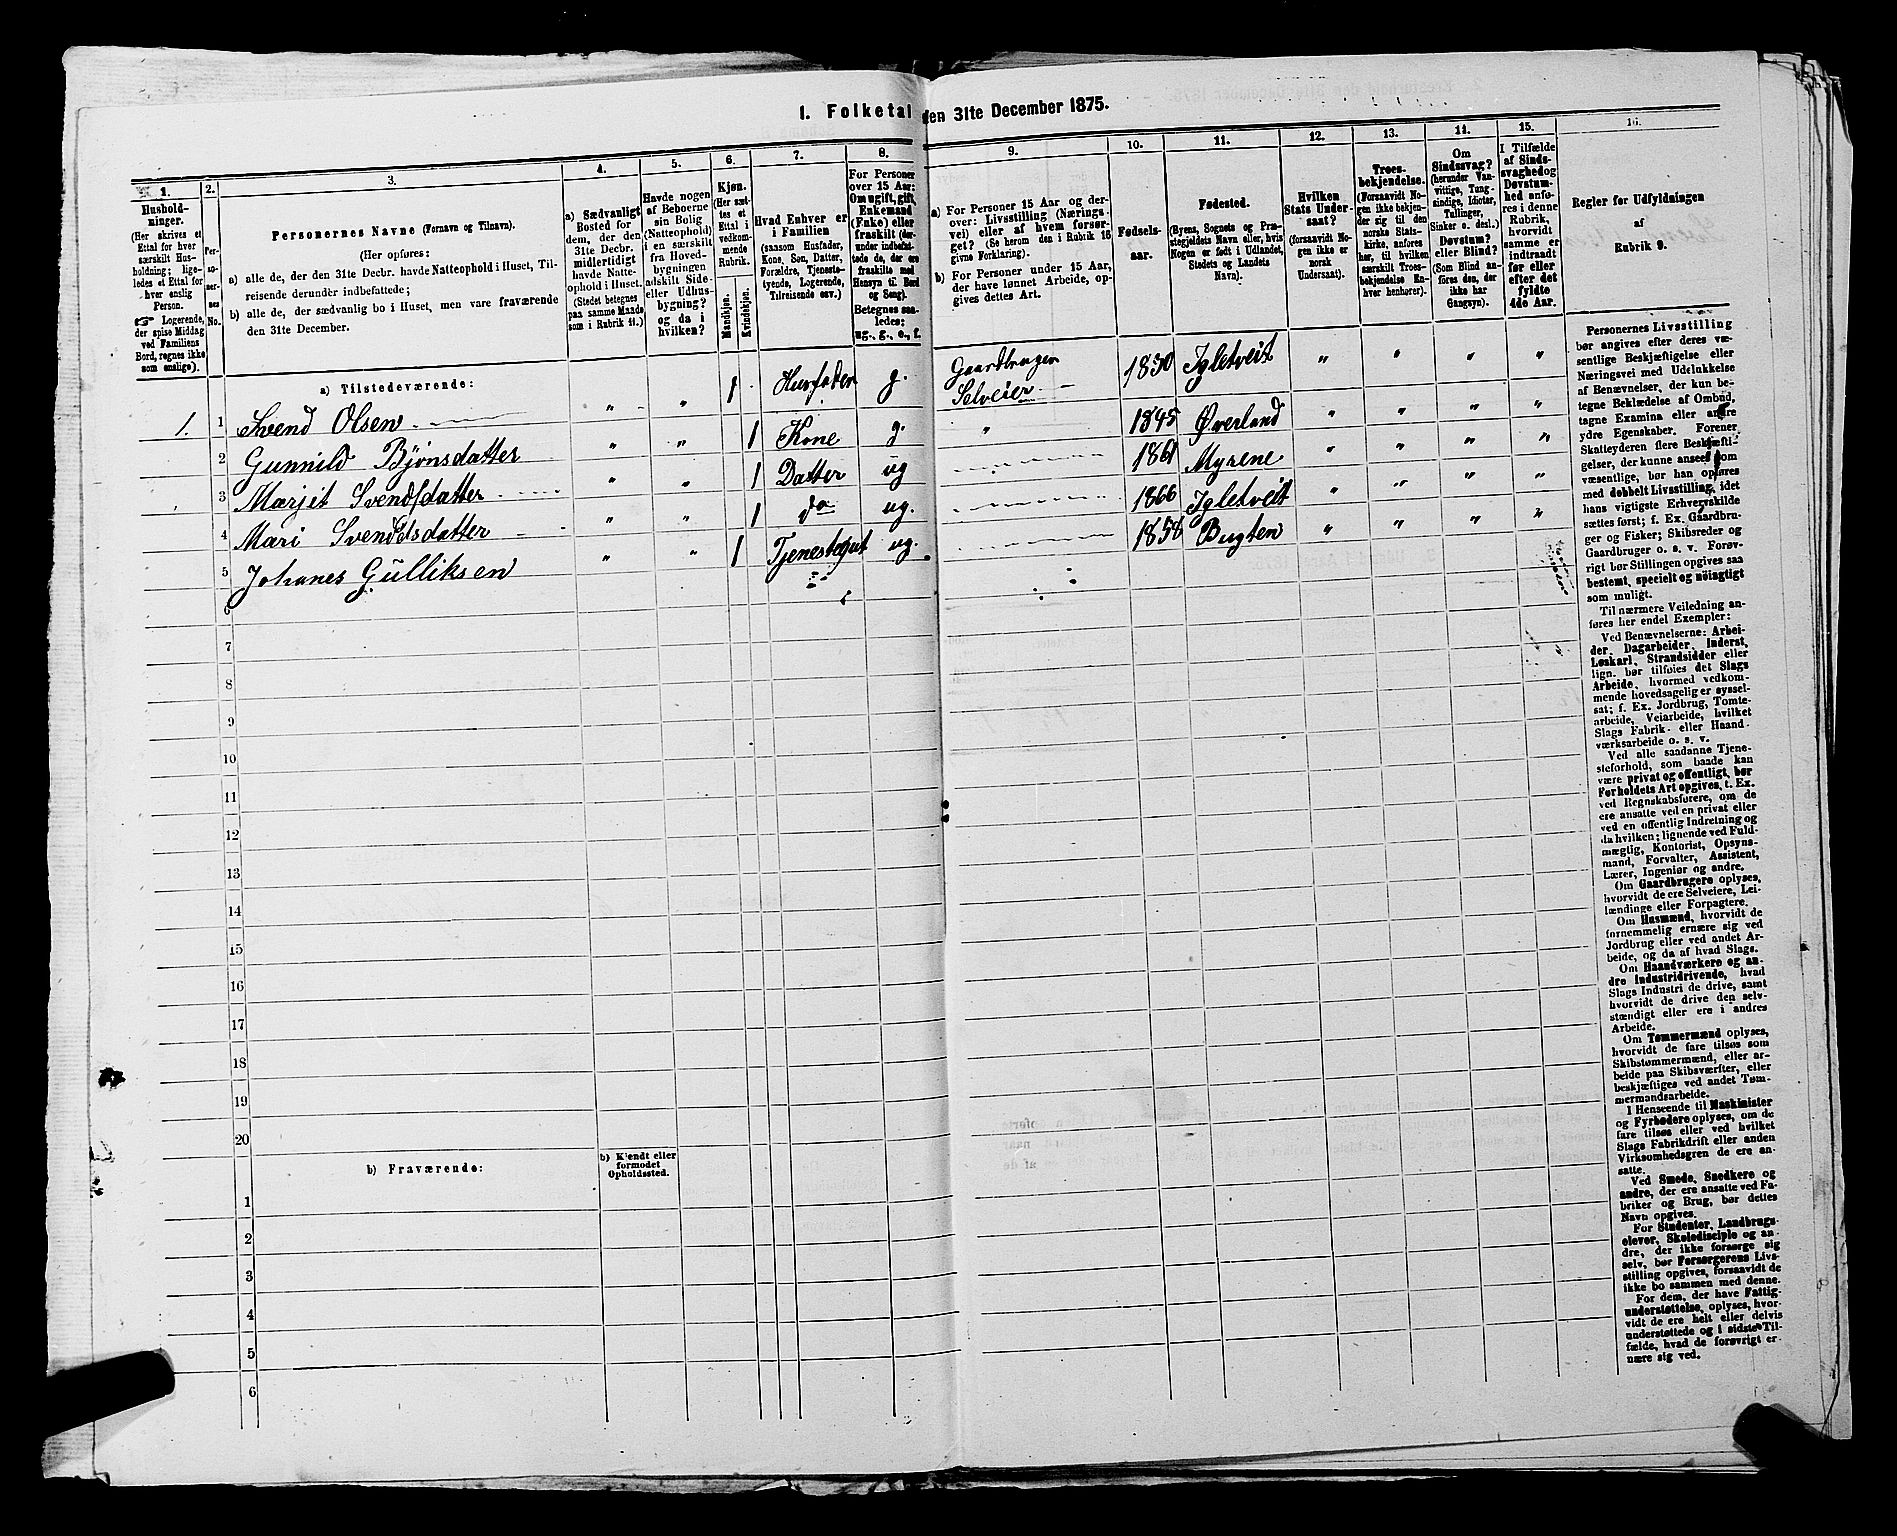 I. Folketal den 31te December 1875.
1. 2. 3. 4. 5. 6. 7. 8. 9. 10. 11. 12. 13. 14. 15. 16.
Hushold-
ninger.
(Her skrives et
Ettal for hver
særskilt Hus-
holdning; lige-
ledes et Ettal for
hver enslig
Person.
☞ Logerende,
der spise Middag
ved Familiens
Bord, regnes ikke
som enslige).
Per-
so-
ner-
nes
No.
Personernes Navne (Fornavn og Tilnavn).
(Her opføres:
a) alle de, der den 31te Decbr. havde Natteophold i Huset, Til-
reisende derunder indbefattede;
b) alle de, der sædvanlig bo i Huset, men vare fraværende
den 31te December.
a) Sædvanligt
Bosted for
dem, der den
31te Decbr.
midlertidigt
havde Natte-
ophold i Huset.
(Stedet betegnes
paa samme Maade
som i Rubrik 11.)
Havde nogen
af Beboerne
sin Bolig
(Natteophold)
i en særskilt
fra Hoved-
bygningen
adskilt Side-
eller Udhus-
bygning?
og da i
hvilken?
Kjøn.
(Her sæt-
tes et
Ettal i
vedkom-
mende
Rubrik.
Mandkjøn.
Kvindekjøn.
Hvad Enhver er
i Familien
(saasom Husfader,
Kone, Søn, Datter,
Forældre, Tjeneste-
tyende, Logerende,
Tilreisende osv.)
For Personer
over 15 Aar:
Om ugift, gift,
Enkemand
(Enke) eller
fraskilt (der-
under indbefat-
tede de, der ere
fraskilte med
Hensyn til Bord
og Seng).
Betegnes saa-
ledes:
ug., g., e., f.
a) For Personer 15 Aar og der-
over: Livsstilling (Nærings-
vei) eller af hvem forsør-
get? (Se herom den i Rubrik 16
givne Forklaring).
b) For Personer under 15 Aar,
der have lønnet Arbeide, op-
gives dettes Art.
Fødsels-
aar.
Fødested.
(Byens, Sognets og Præ-
stegjeldets Navn eller, hvis
Nogen er født i Udlandet,
Stedets og Landets
Navn).
Hvilken
Stats Under-
saat?
(forsaavidt No-
gen ikke er
norsk
Undersaat).
Troes-
bekjendelse.
(Forsaavidt No-
gen ikke bekjen-
der sig til den
norske Stats-
kirke, anføres
her, til hvilken
særskilt Troes-
bekjendelse En-
hver henhører).
Om
Sindssvag?
(herunder Van-
vittige, Tung-
sindige, Idioter,
Tullinger,
Sinker o. desl.)
Døvstum?
eller Blind?
(Som Blind an-
føres den, der
ikke har
Gangsyn).
I Tilfælde
af Sinds-
svaghed og
Døvstum-
hed anfø-
res i denne
Rubrik,
hvorvidt
samme er
indtraadt
før eller
efter det
fyldte
4de Aar.
Regler for Udfyldningen
af
Rubrik 9.
a) Tilstedeværende:
1. 1 Svend Olsen „ „ 1 Husfader g. Gaardbruger Selveier 1830 Igletveit „ „ „ „
2 Gunnild Bjønsdatter „ „ 1 Kone g. „ 1845 Øverland „ „ „ „
3 Marjit Svendsdatter „ „ 1 Datter ug 1861 Myrene „ „ „ „
4 Mari Svendsdatter „ „ 1 do ug. 1866 Igletveit „ „ „ „
5 Johanes Gulliksen „ „ 1 Tjenestegut ug. 1858 Bugten „ „ „ „
6
7
8
9
10
11
12
13
14
15
16
17
18
19
20
b) Fraværende:
b) Kjendt eller
formodet
Opholdssted.
1
2
3
4
5
6
Personernes Livsstilling
bør angives efter deres væ-
sentlige Beskjæftigelse eller
Næringsvei med Udelukkelse
af Benævnelser, der kun be-
tegne Beklædelse af Ombud,
tagne Examina eller andre
ydre Egenskaber. Forener
Skatteyderen flere Beskjæfti-
gelser, der kunne ansees som
væsentlige, bør han opføres
med dobbelt Livsstilling, idet
hans vigtigste Erhvervskilde
sættes først; f. Ex. Gaardbru-
ger og Fisker; Skibsreder og
Gaardbruger o. s. v. Forøv-
rigt bør Stillingen opgives saa
bestemt, specielt og nøiagtigt
som muligt.
Til nærmere Veiledning an-
føres her endel Exempler:
Ved Benævnelserne: Arbei-
der, Dagarbeider, Inderst,
Løskarl, Strandsidder eller
lign. bør tilføies det Slags
Arbeide, hvormed vedkom-
mende hovedsagelig er syssel-
sat; f. Ex. Jordbrug, Tomte-
arbeide, Veiarbeide, hvilket
Slags Fabrik- eller Haand-
værksarbeide o. s. v.
Ved alle saadanne Tjene-
steforhold, som baade kan
være privat og offentligt, bør
Forholdets Art opgives, t. Ex.
ved Regnskabsførere, om de
ere ansatte ved en privat eller
ved en offentlig Indretning og
da hvilken; lignende ved Fuld-
mægtig, Kontorist, Opsyns-
mand, Forvalter, Assistent,
Lærer, Ingeniør og andre.
Om Gaardbrugere oplyses,
hvorvidt de ere Selveiere, Lei-
lændinge eller Forpagtere.
Om Husmænd, hvorvidt de
fornemmelig ernære sig ved
Jordbrug eller ved andet Ar-
beide, og da af hvad Slags.
Om Haandværkere og an-
dre Industridrivende, hvad
Slags Industri de drive, samt
hvorvidt de drive den selv-
stændigt eller ere i andres
Arbeide.
Om Tømmermænd oplyses,
hvorvidt de fare tilsøs som
Skibstømmermænd, eller ar-
beide paa Skibsværfter, eller
beskjæftiges ved andet Tøm-
mermandsarbeide.
I Henseende til Maskinister
og Fyrbødere oplyses, om de
fare tilsøs eller ved hvilket
Slags Fabrikdrift eller anden
Virksomhedsgren de ere an-
satte.
Ved Smede, Snedkere og
andre, der ere ansatte ved Fa-
briker og Brug, bør dettes
Navn opgives.
For Studenter, Landbrugs-
elever, Skoledisciple og an-
dre, der ikke forsørge sig
selv, bør Forsørgerens Livs-
stilling opgives, forsaavidt de
ikke bo sammen med denne.
For dem, der have Fattig-
understøttelse, oplyses, hvor-
vidt de ere helt eller delvis
understøttede og i sidste Til-
fælde, hvad de forøvrigt er-
nære sig ved.